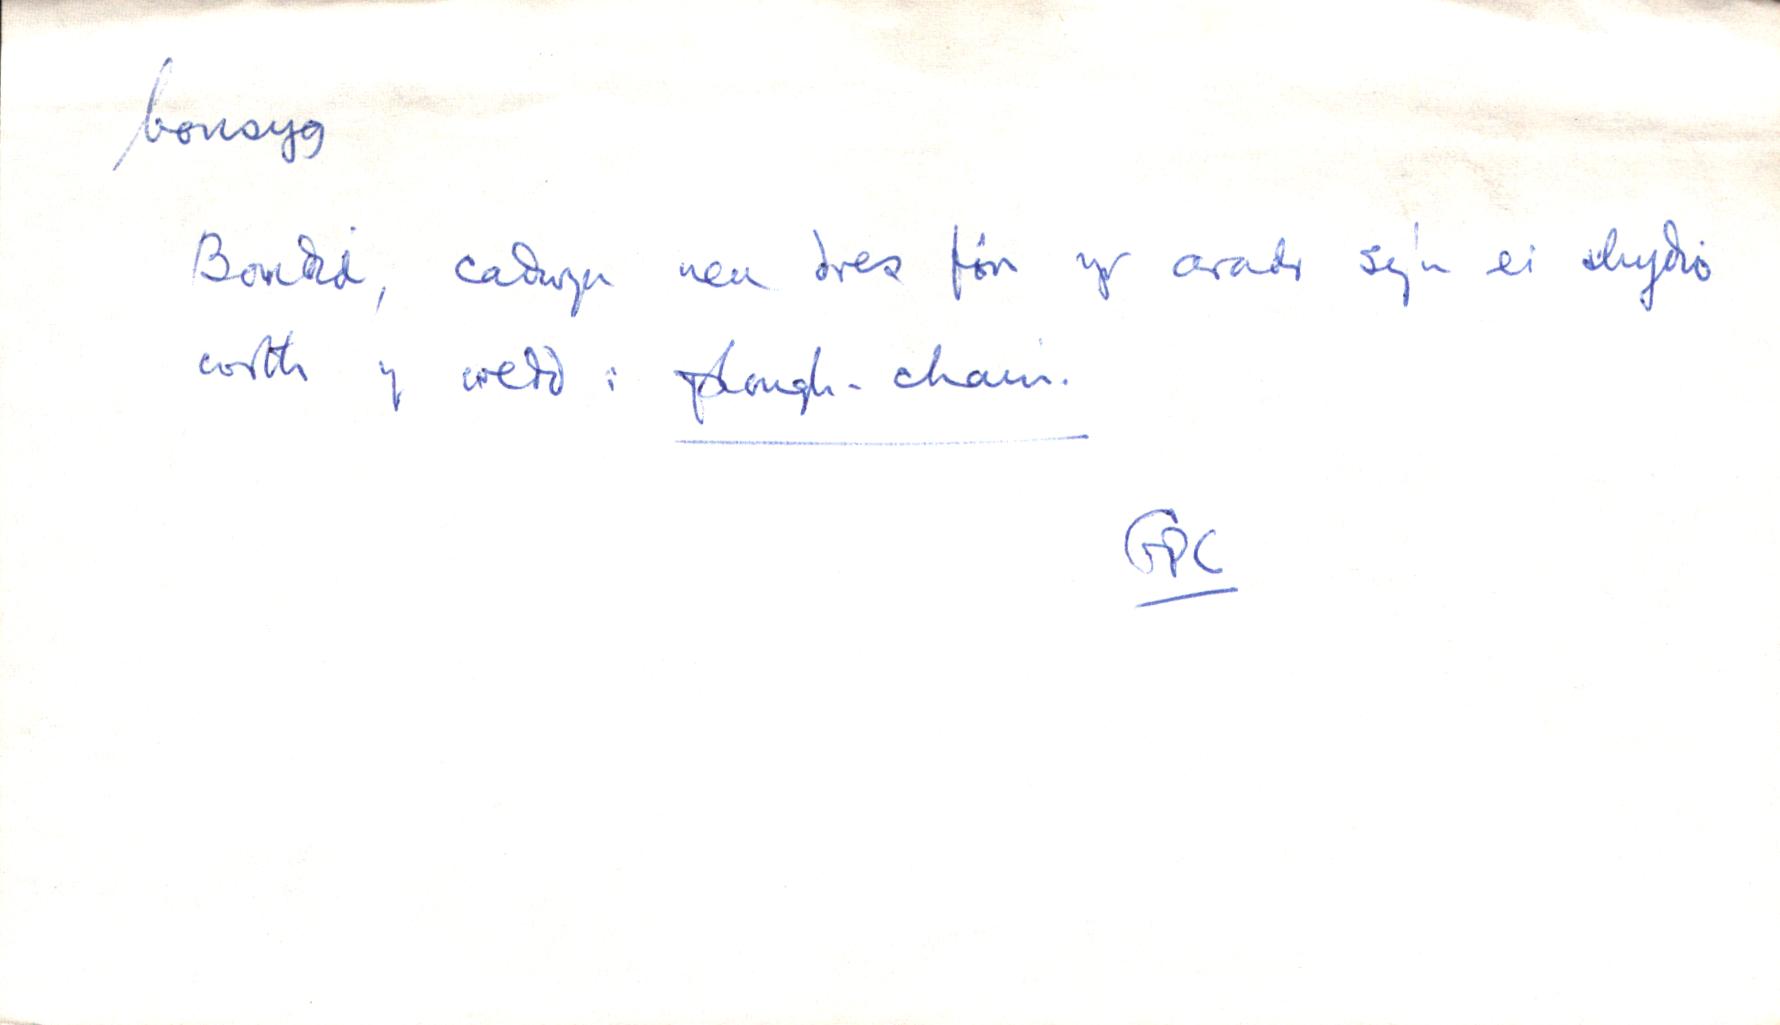 bonsyg
Bondid, cadwyn neu dres fôn yr aradr sy'n ei chydio
wrth y wedd : plough-chain.
GPC